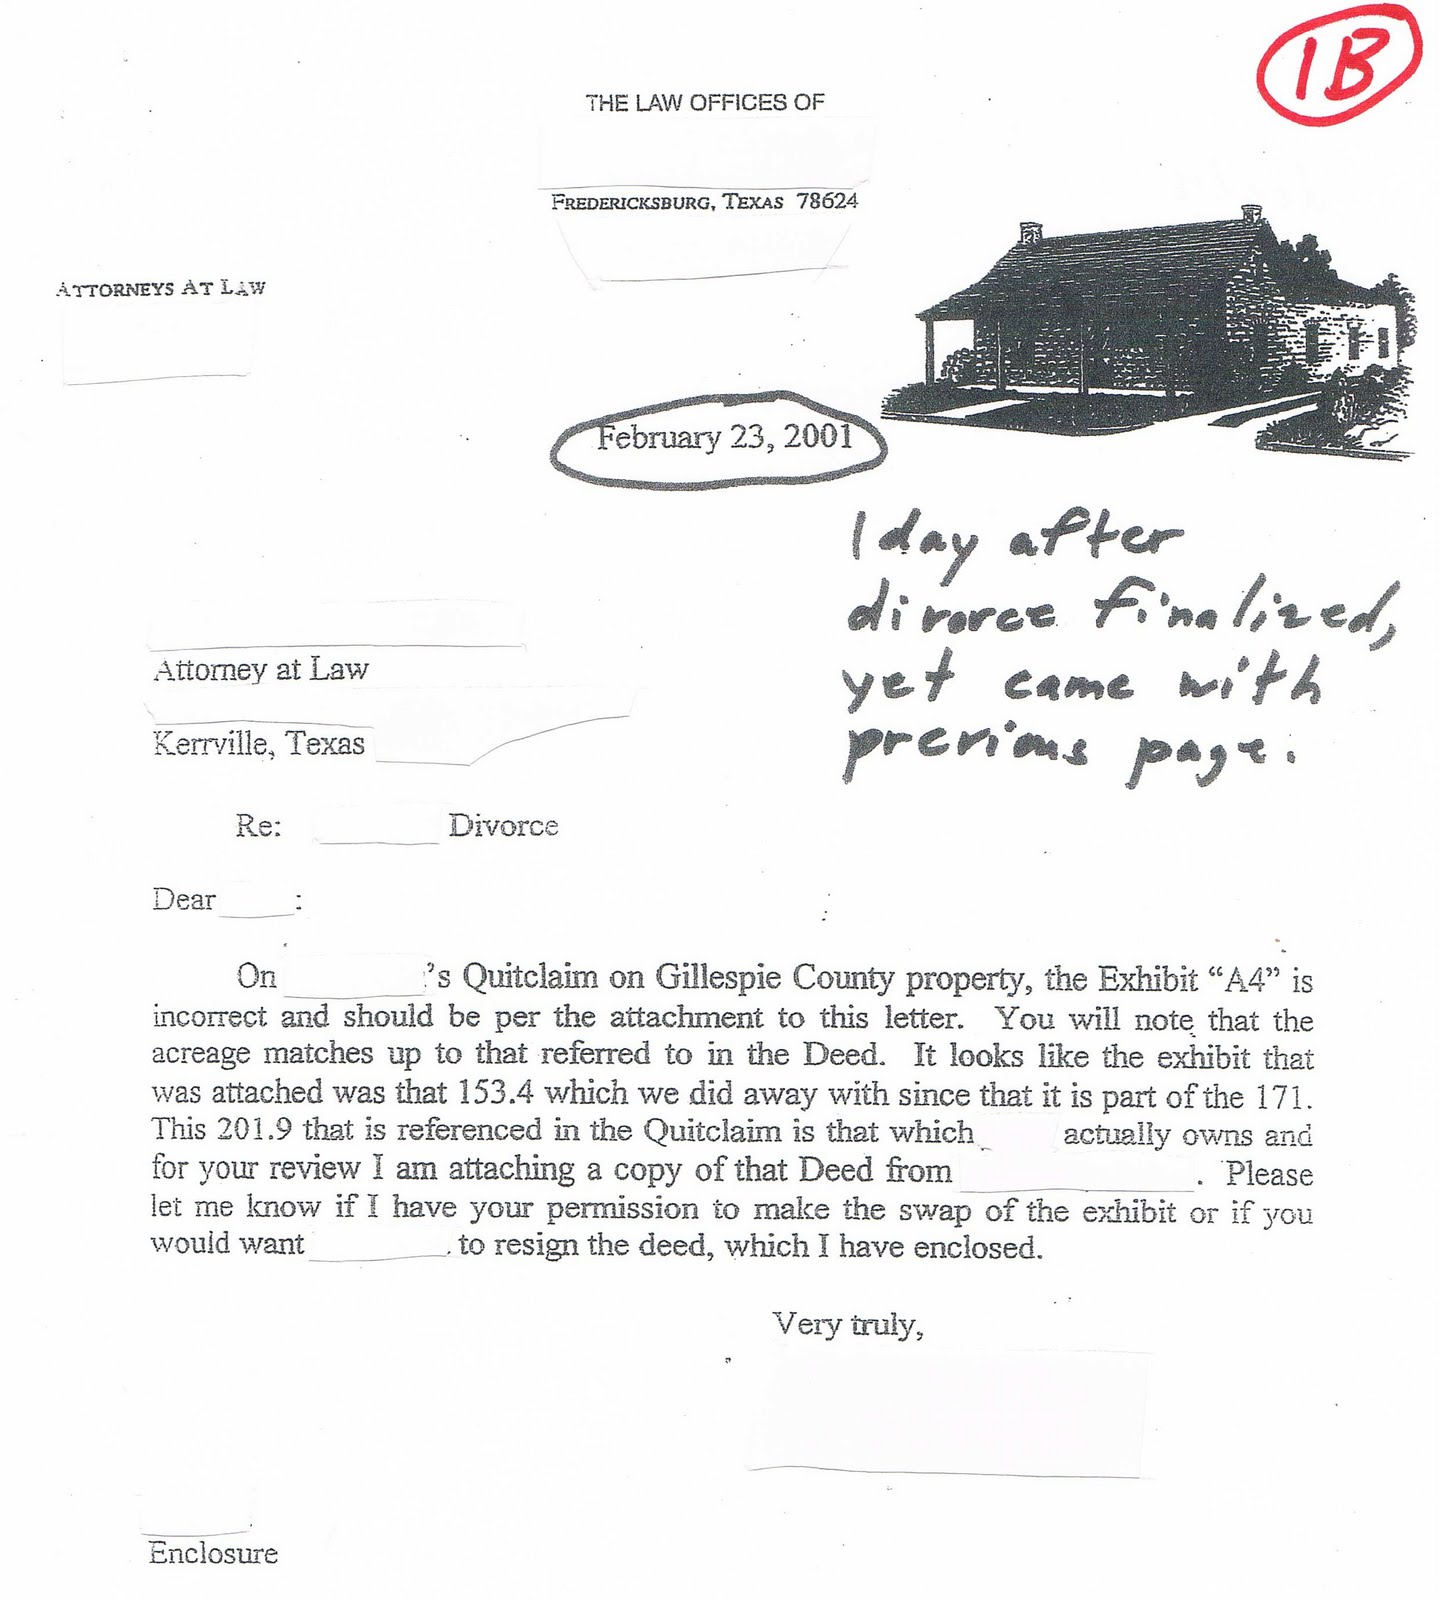 1B
THE LAW OFFICES OF
FREDERICKSBURG, TEXAS 78624
ATTORNEYS AT LAW
February 23, 2001
1 day after
divorce finalized,
yet came with
previous page.
Attorney at Law
Kerrville, Texas
Re: Divorce
Dear :
On 's Quitclaim on Gillespie County property, the Exhibit “A4” is
incorrect and should be per the attachment to this letter. You will note that the
acreage matches up to that referred to in the Deed. It looks like the exhibit that
was attached was that 153.4 which we did away with since that it is part of the 171.
This 201.9 that is referenced in the Quitclaim is that which actually owns and
for your review I am attaching a copy of that Deed from . Please
let me know if I have your permission to make the swap of the exhibit or if you
would want to resign the deed, which I have enclosed.
Very truly,
Enclosure